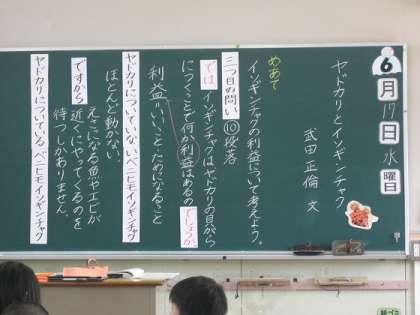 6月17日水曜日
ヤドカリとイソギンチャク
武田 正倫 文
めあて
イソギンチャクの利益について考えよう。
三つ目の問い ⑩段落
では、イソギンチャクはヤドカリの貝がら
につくことで何か利益はあるのでしょうか。
利益=いいこと・ためになること
ヤドカリについていないベニヒモイソギンチャク
ほとんど動かない。
ですから
えさになる魚やエビが
近くにやってくるのを
待つしかありません。
ヤドカリについている、ベニヒモイソギンチャク